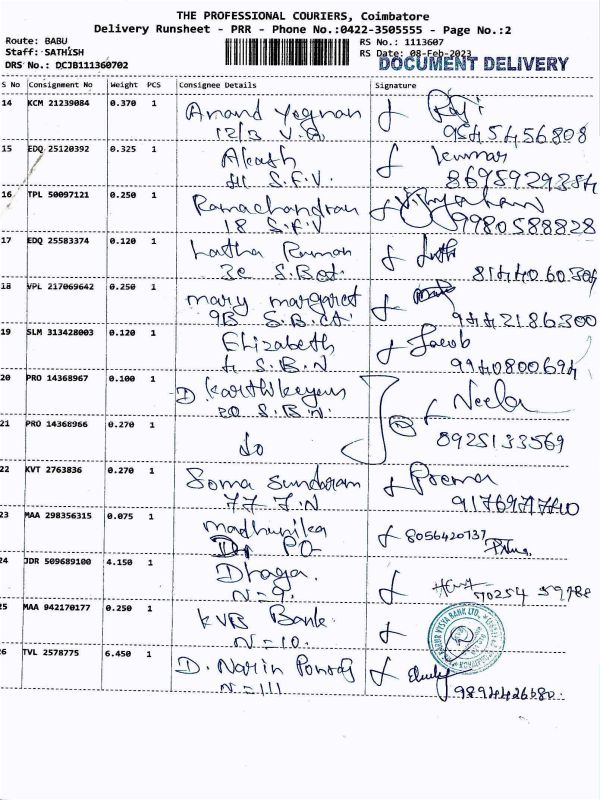 THE PROFESSIONAL COURIERS, Coimbatore
Delivery Runsheet - PRR - Phone No.:0422-3505555 - Page No.:2
Route: BABU
RS No.: 1113607
Staff: SATHISH
RS Date: 08-Feb-2023
DRS No.: DCJB111360702
DOCUMENT DELIVERY
S No Consignment No Weight PCS Consignee Details Signature
14 KCM 21239084 0.370 1 Anand Yegnan
12/3 V.G.
9545456808
15 EDQ 25120392 0.325 1 Akash Kumar
S.F.V. 8695929384
16 TPL 50097121 0.250 1 Ramachandran
18 S.F.V 9980588828
17 EDQ 25583374 0.120 1 Latha Raman
3C S.Bot. 8144060304
18 VPL 217069642 0.250 1 mary margaret
9B S.B.Ct. 9442186300
19 SLM 313428003 0.120 1 Elizabeth Jacob
S.B.N 9940800694
20 PRO 14368967 0.100 1 D Karthikeyan Neela
20 S.B.N.
21 PRO 14368966 0.270 1 do 8925133569
22 KVT 2763836 0.270 1 Soma Sundaram Prema
77 J.N
23 MAA 298356315 0.075 1 madhunika 8056420737
24 JDR 509689100 4.150 1 Dhaga.
N=9. 70254 59788
25 MAA 942170177 0.250 1 KVB Bank
N=10.
26 TVL 2578775 6.450 1 D. Narin Ponraj
N=111